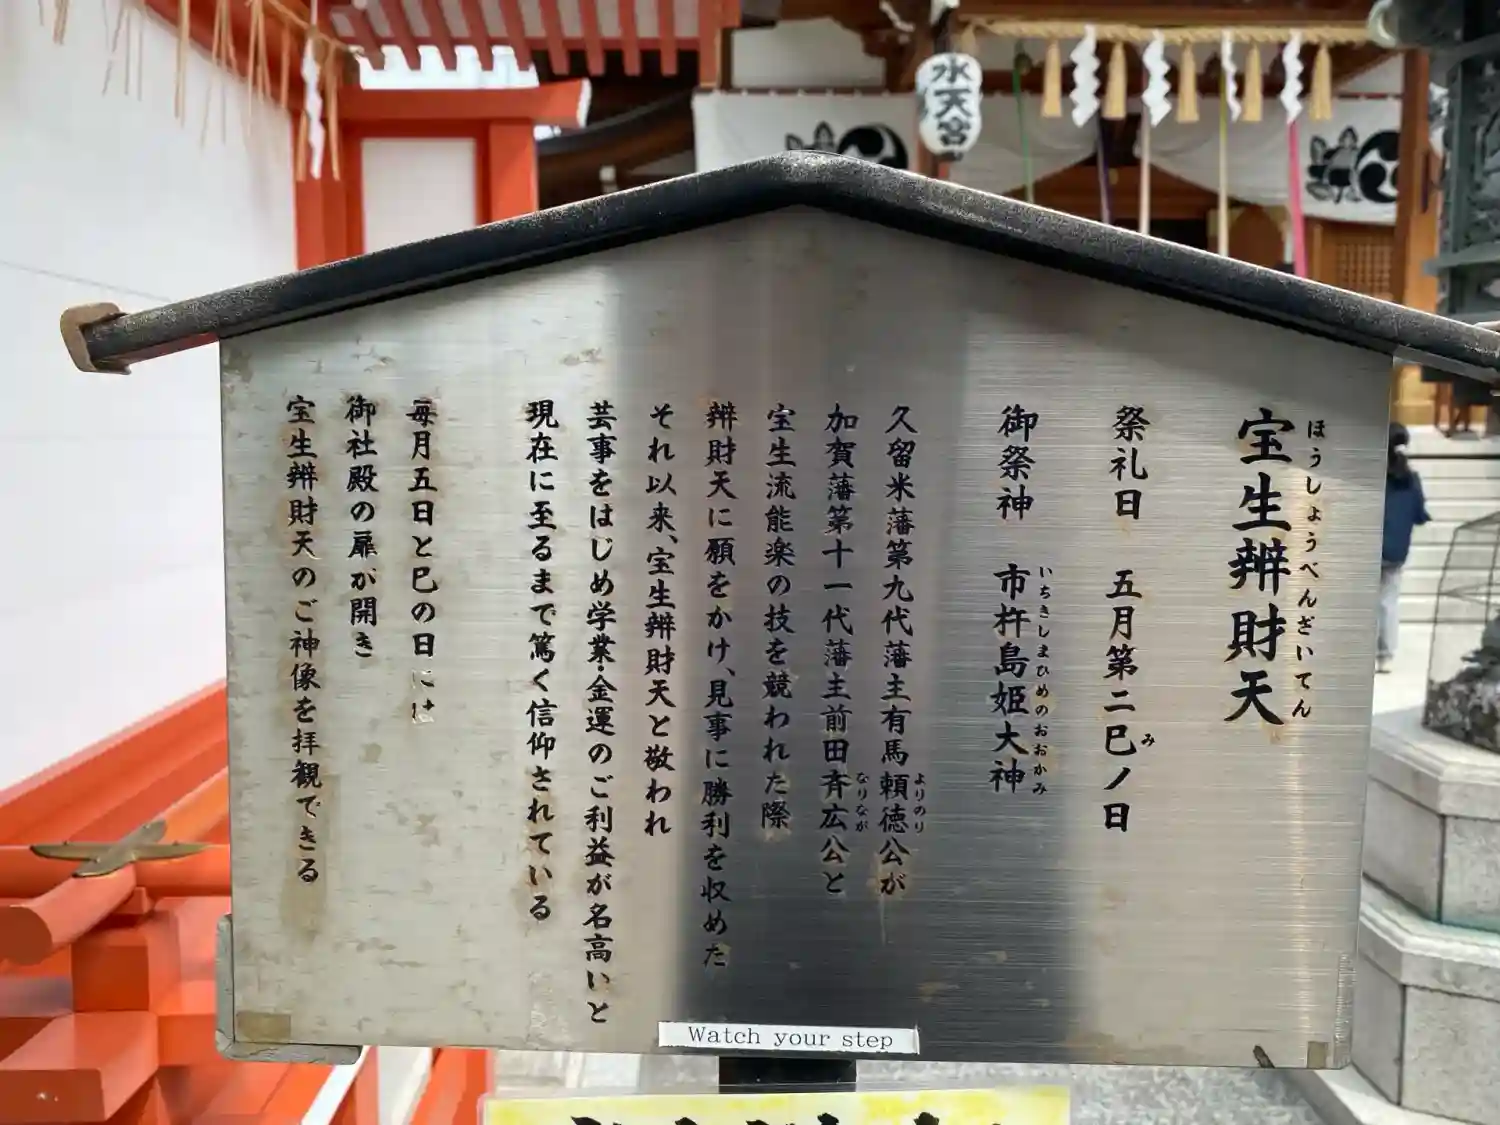 水天宮
宝生辨財天
ほうしょうべんざいてん
祭礼日 五月第二巳ノ日
み
御祭神 市杵島姫大神
いちきしまひめのおおかみ
久留米藩第九代藩主有馬頼徳公が
よりのり
加賀藩第十一代藩主前田斉広公と
なりなが
宝生流能楽の技を競われた際
辨財天に願をかけ、見事に勝利を収めた
それ以来、宝生辨財天と敬われ
芸事をはじめ学業金運のご利益が名高いと
現在に至るまで篤く信仰されている
毎月五日と巳の日には
御社殿の扉が開き
宝生辨財天のご神像を拝観できる
Watch your step